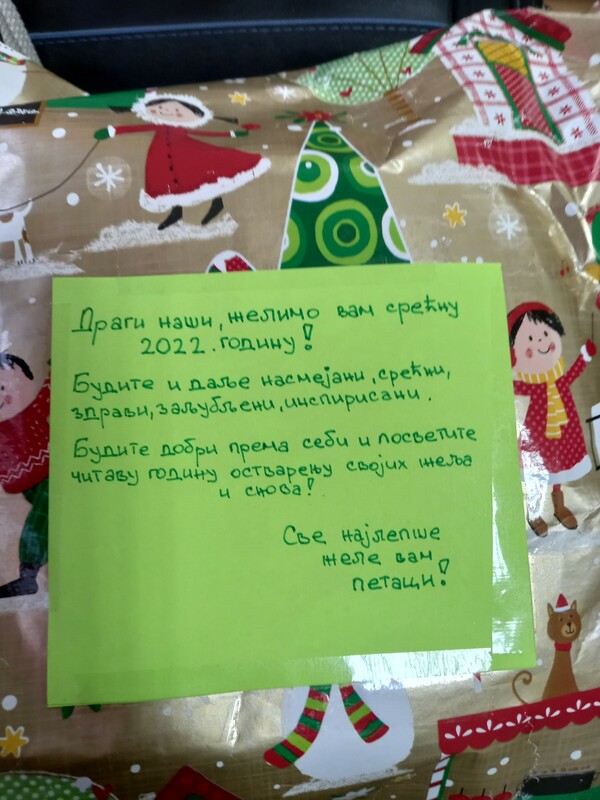 Драги наши, желимо вам срећну
2022. годину!
Будите и даље насмејани, срећни,
здрави, заљубљени, инспирисани.
Будите добри према себи и посветите
читаву годину остварењу својих жеља
и снова!
Све најлепше
желе вам
петаци!